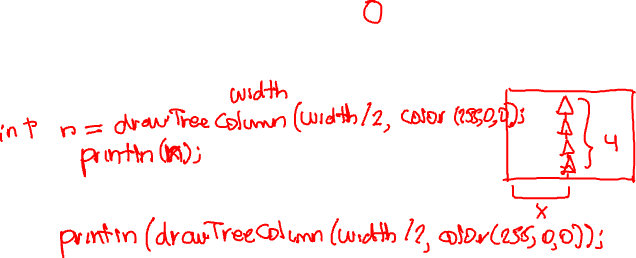 0
width
int n = drawTreeColumn(width/2, color(255,0,0);
println(n);
4
x
println(drawTreeColumn(width/2, color(255,0,0));